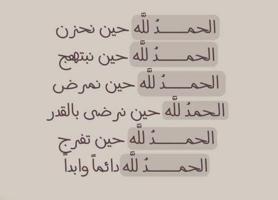 الحمدُ للَّه حين نحزن
الحمدُ للَّه حين نبتهج
الحمدُ للَّه حين نمرض
الحمدُ للَّه حين نرضى بالقدر
الحمدُ للَّه حين تفرج
الحمدُ للَّه دائماً وابداً